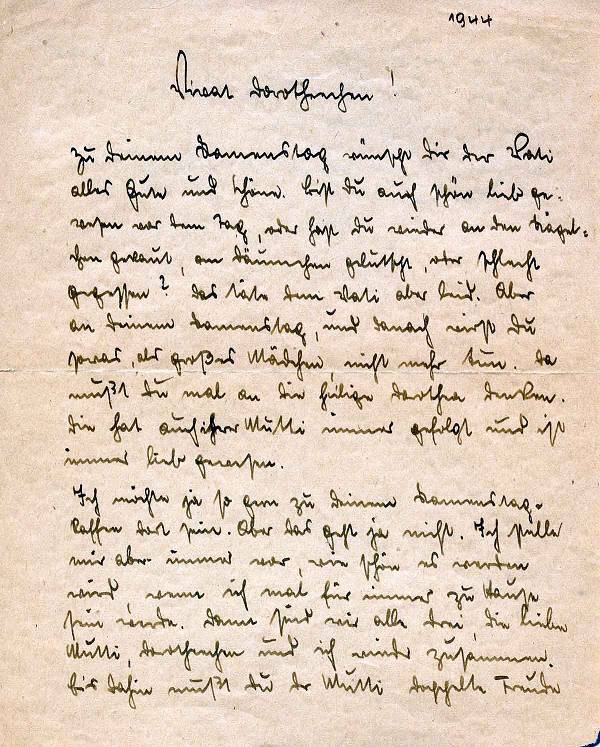 1944
Vivat Dorotheechen!
Zu Deinem Namenstag wünscht Dir der Vati
alles Gute und Schöne. Bist Du auch schön lieb ge-
wesen vor dem Tag, oder hast Du wieder an den Nägel-
chen gekaut, am Däumchen gelutscht, oder schlecht
gegessen? Das täte dem Vati aber leid. Aber
an Deinem Namenstag, und danach wirst Du
sowas, als großes Mädchen, nicht mehr tun. Da
mußt Du mal an die heilige Dorothea denken.
Die hat auch ihrer Mutti immer gefolgt und ist
immer lieb gewesen.
Ich möchte ja so gern zu Deinem Namenstag-
kaffee dort sein. Aber das geht ja nicht. Ich stelle
mir aber immer vor, wie schön es werden
wird, wenn ich mal für immer zu Hause
sein werde. Dann sind wir alle drei, die liebe
Mutti, Dorotheechen und ich wieder zusammen.
Bis dahin mußt Du der Mutti doppelte Freude